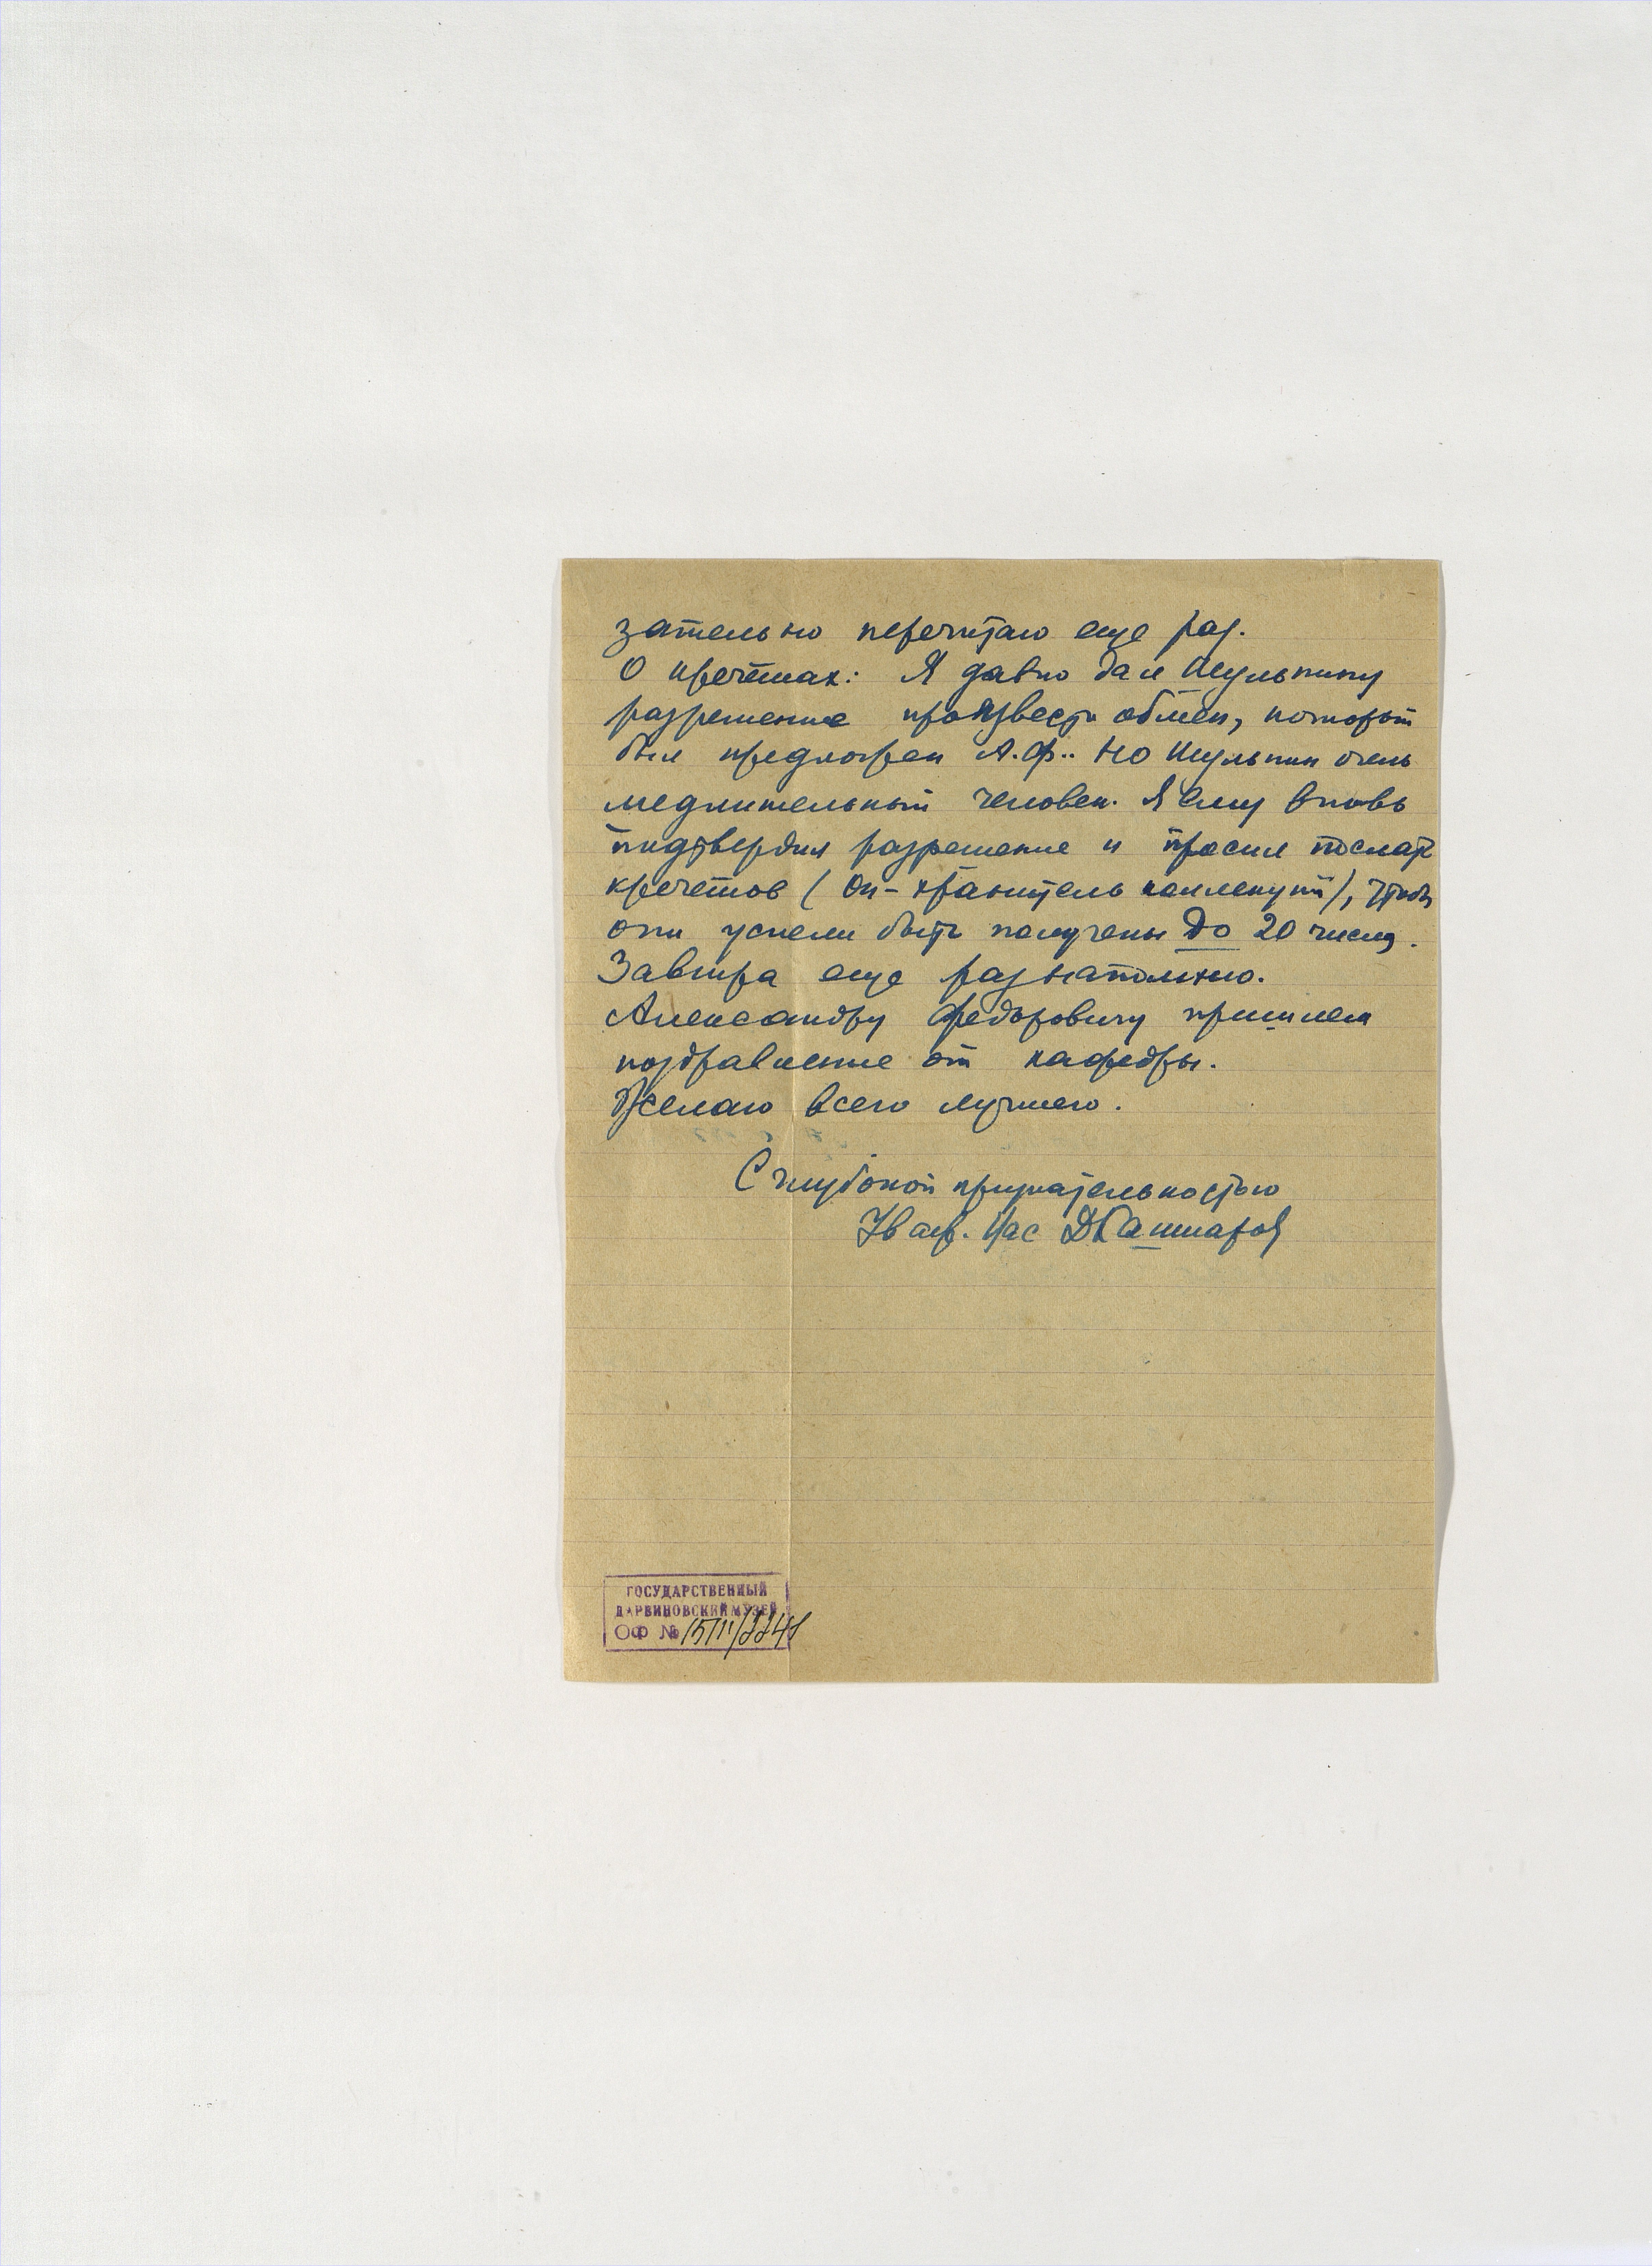 зательно перечитаю еще раз.
О кречетах: Я давно дал Шульпину
разрешение произвести обмен, который
был предложен А.Ф.. Но Шульпин очень
медлительный человек. Я ему вновь
подтвердил разрешение и просил послать
кречетов (он - хранитель коллекций), чтобы
они успели быть получены до 20 числа.
Завтра еще раз напомню.
Александру Федоровичу пришлем
поздравление от кафедры.
Желаю всего лучшего.
С глубокой признательностью
Ув аж. Вас ДКашкаров
ГОСУДАРСТВЕННЫЙ
ДАРВИНОВСКИЙ МУЗЕЙ
ОФ №